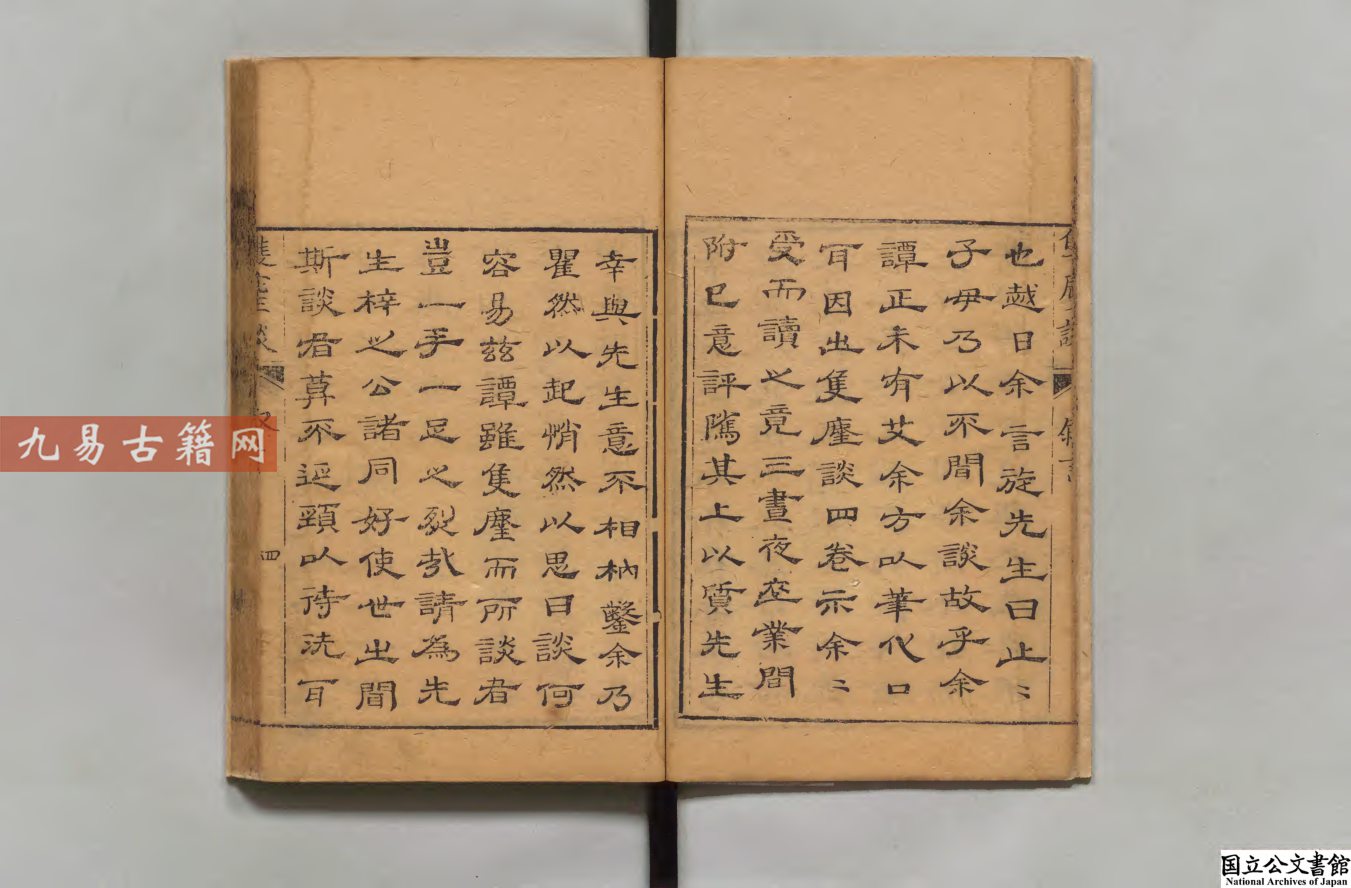 也越日余言旋先生曰止〻
子毋乃以不間余談故乎余
譚正未有艾余方以筆代口
耳因出隻麈談四卷示余〻
受而讀之竟三晝夜卒業間
附已意評隲其上以質先生
幸與先生意不相枘鑿余乃
瞿然以起悄然以思曰談何
容易茲譚雖隻麈而所談者
豈一手一足之烈哉請為先
生梓之公諸同好使世出間
斯談者莫不延頸以待洗耳
四
九易古籍网
国立公文書館
National Archives of Japan